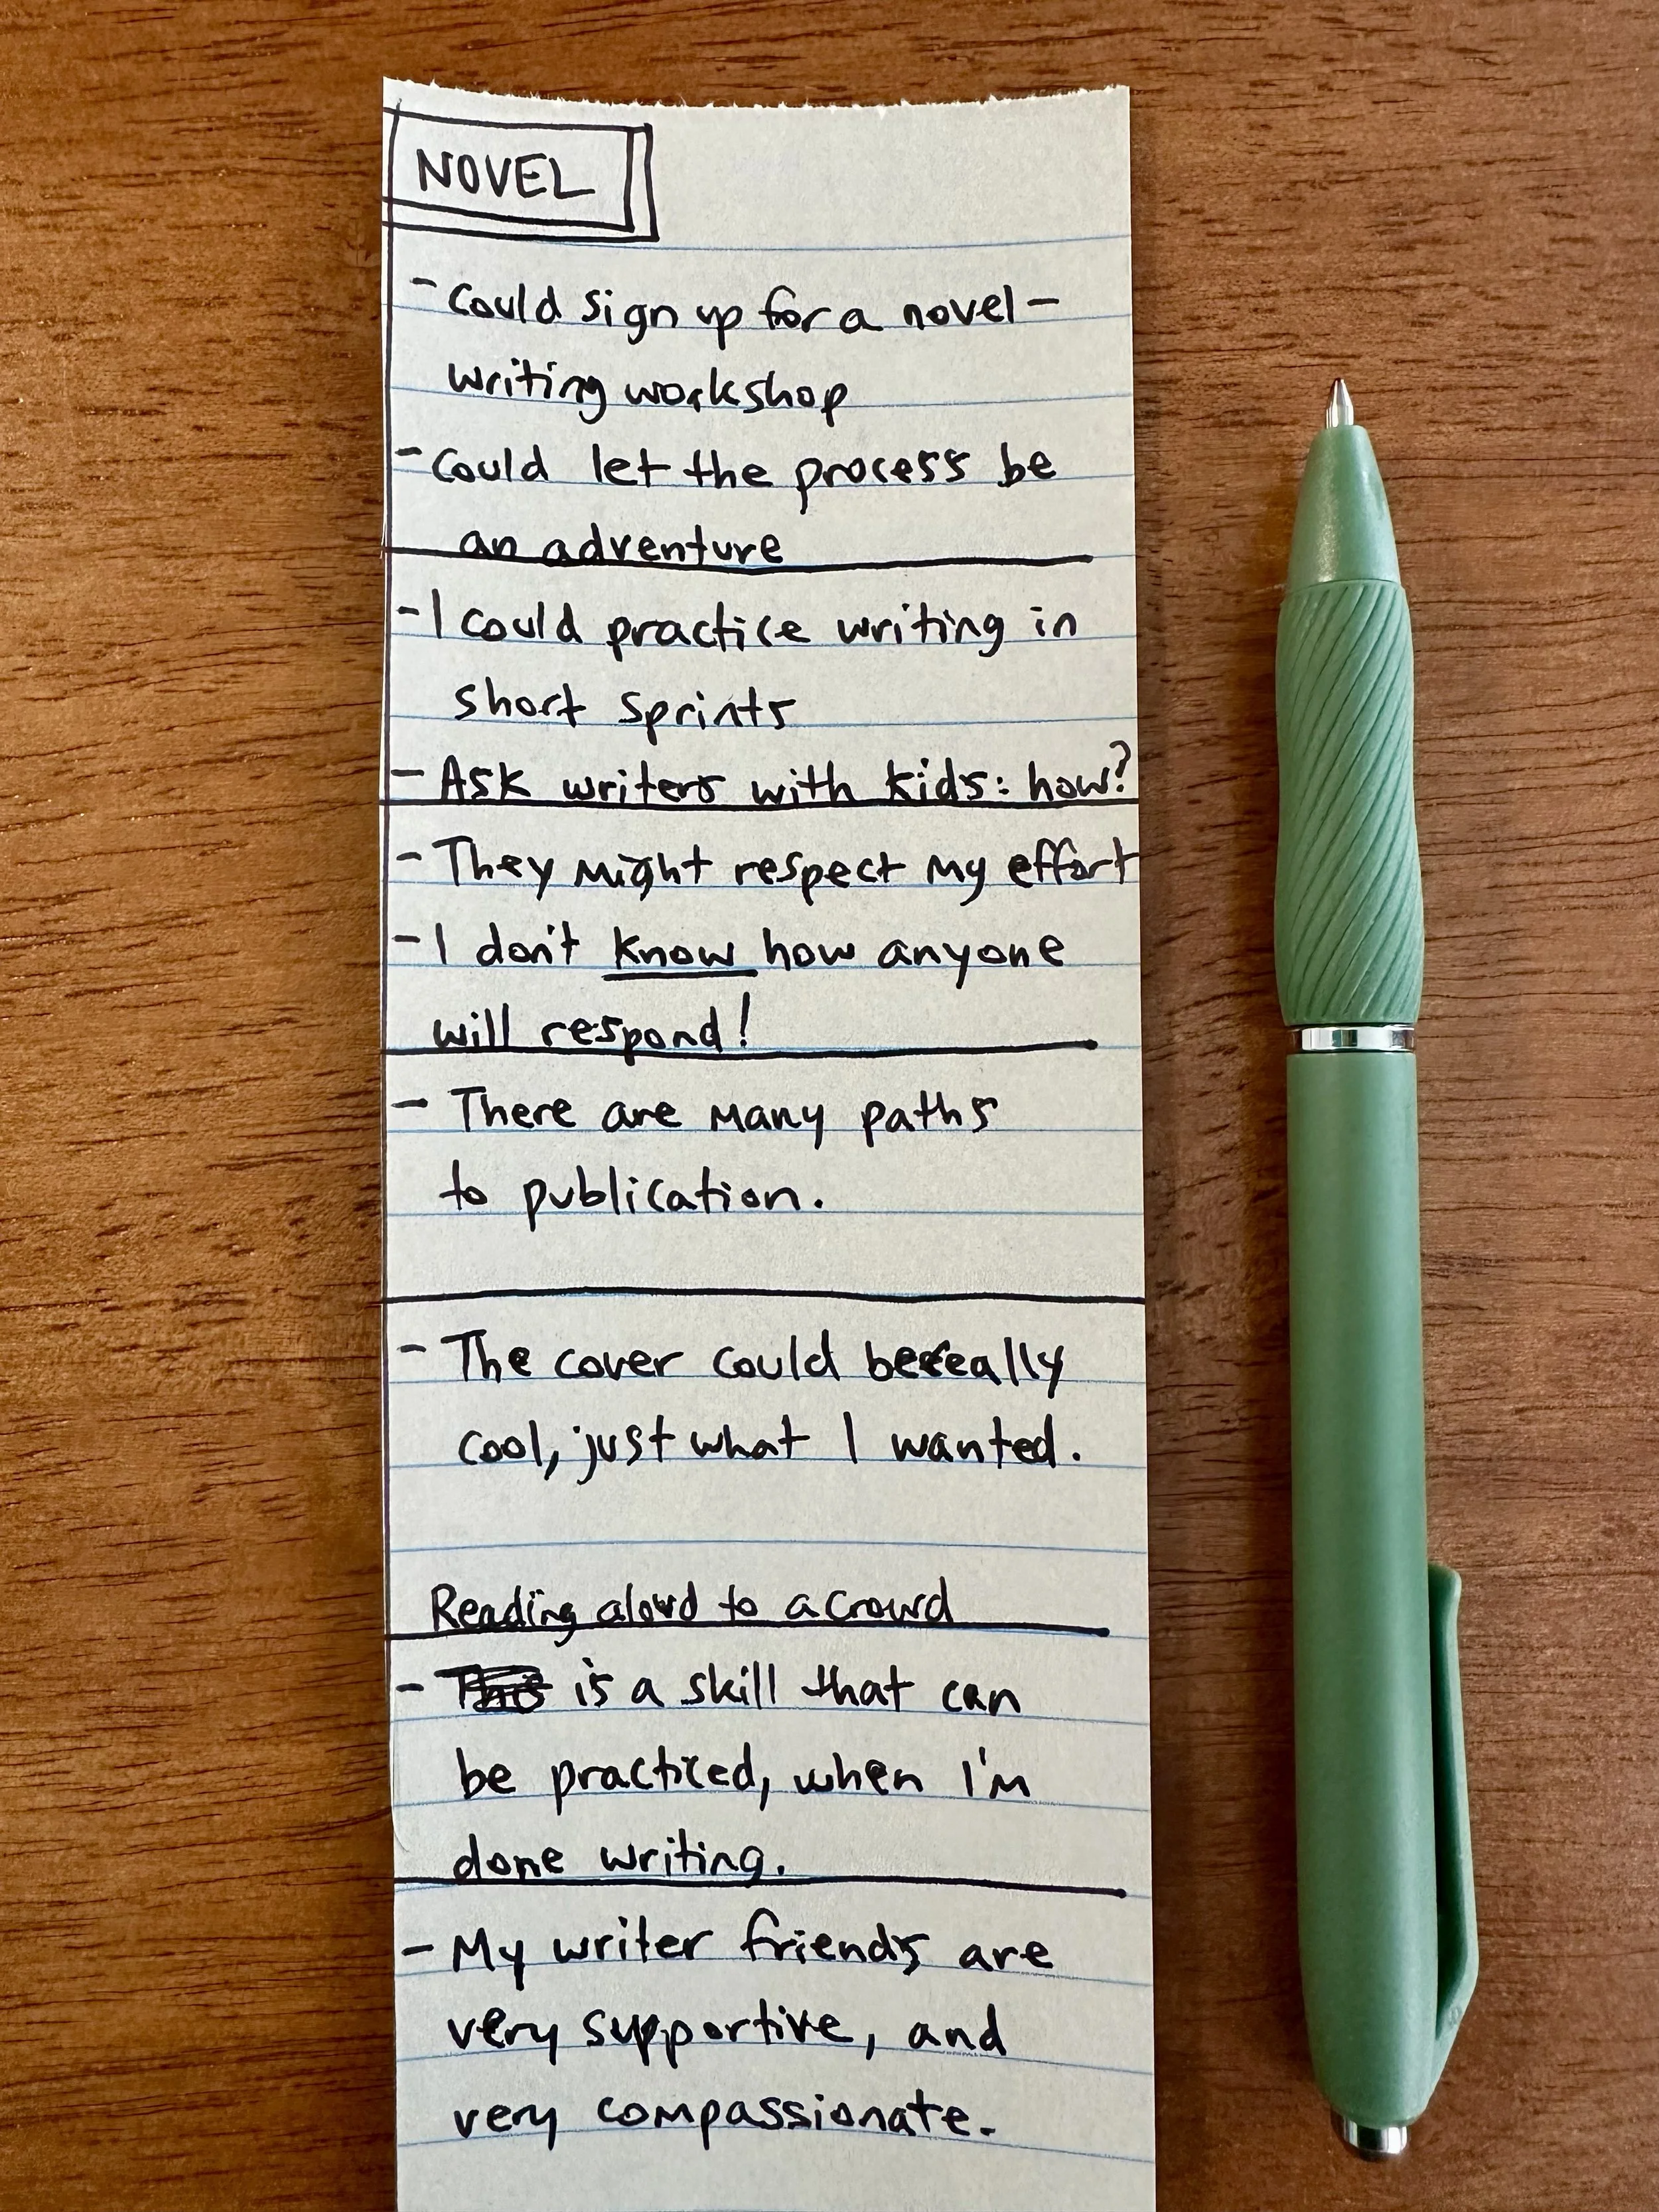 NOVEL
- Could sign up for a novel-
writing workshop
- Could let the process be
an adventure
- I could practice writing in
short sprints
- Ask writers with kids: how?
- They might respect my effort
- I don't know how anyone
will respond!
- There are many paths
to publication.
- The cover could be really
cool, just what I wanted.
Reading aloud to a crowd
- This is a skill that can
be practiced, when I'm
done writing.
- My writer friends are
very supportive, and
very compassionate.